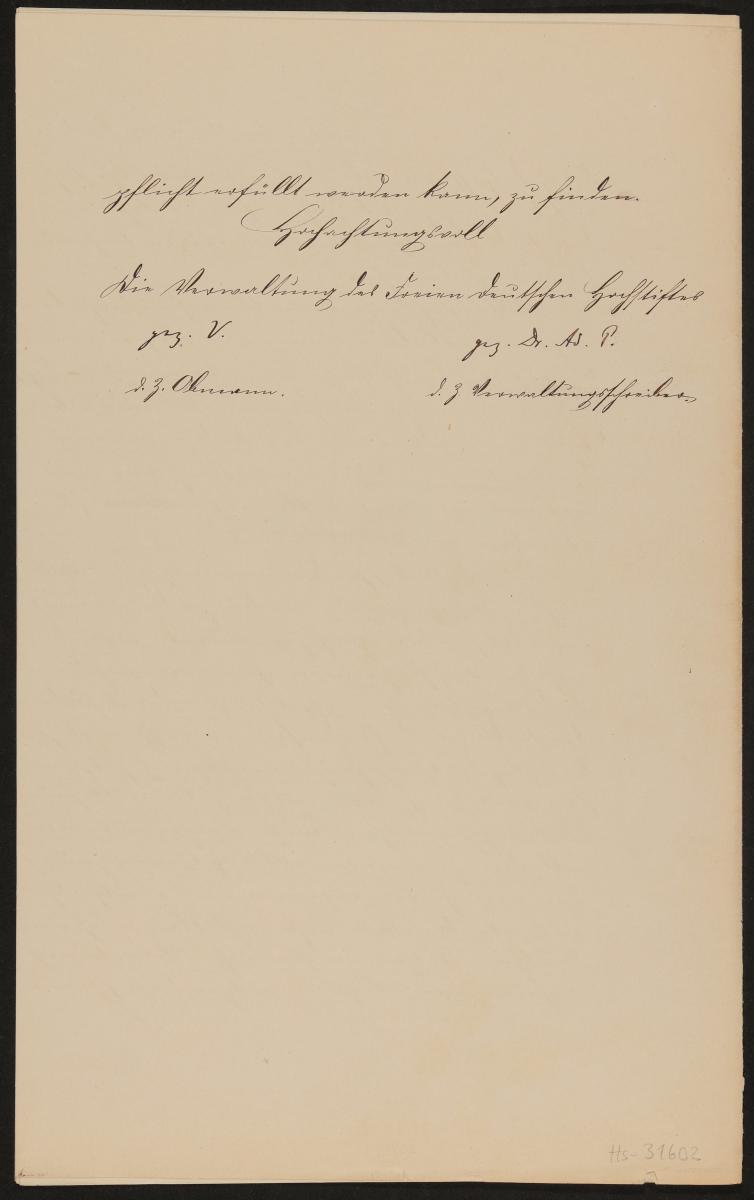 pflicht erfüllt werden kann, zu finden.
Hochachtungsvoll
Die Verwaltung des Freien Deutschen Hochstiftes
gez. V. gez. Dr. Ad. P.
d. Z. Obmann. d. Z Verwaltungsschreiber.
Hs-31602